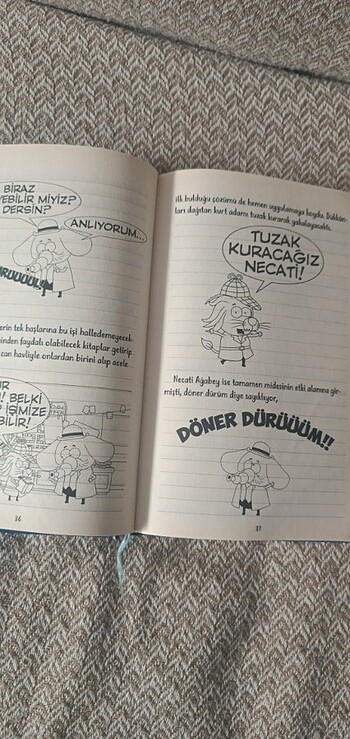 BİRAZ
EBİLİR MİYİZ?
DERSİN?
ANLIYORUM...
erin tek başlarına bu işi halledemeyecek-
inden faydalı olabilecek kitaplar getirip
can havliyle onlardan birini alıp acele
UR
! BELKİ
İŞİMİZE
BİLİR!
36
ilk bulduğu çözümü de hemen uygulamaya koydu. Dükkân-
ları dağıtan kurt adamı tuzak kurarak yakalayacaktı.
TUZAK
KURACAĞIZ
NECATİ!
Necati Ağabey ise tamamen midesinin etki alanına gir-
mişti, döner dürüm diye sayıklıyor,
DÖNER DÜRÜÜÜM!!
37